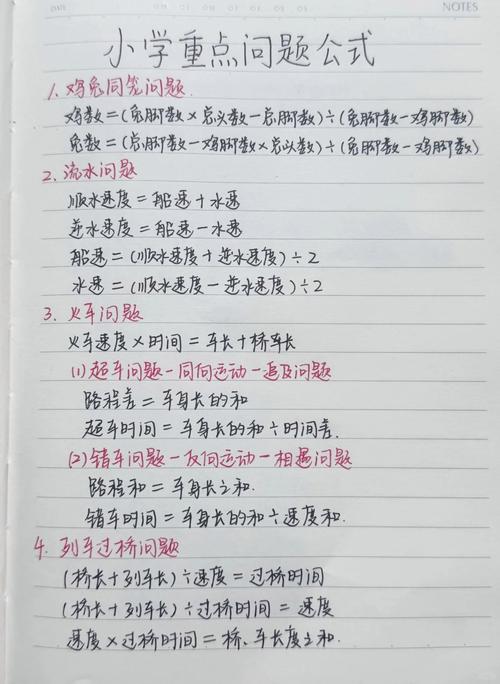 DATE
NOTES
小学重点问题公式
1. 鸡兔同笼问题
鸡数=(兔脚数×总头数-总脚数)÷(兔脚数-鸡脚数)
兔数=(总脚数-鸡脚数×总头数)÷(兔脚数-鸡脚数)
2. 流水问题
顺水速度=船速+水速
逆水速度=船速-水速
船速=(顺水速度+逆水速度)÷2
水速=(顺水速度-逆水速度)÷2
3. 火车问题
火车速度×时间=车长+桥车长
(1) 超车问题-同向运动-追及问题
路程差=车身长的和
超车时间=车身长的和÷时间差.
(2) 错车问题-反向运动-相遇问题
路程和=车身长之和.
错车时间=车身长的和÷速度和.
4. 列车过桥问题
(桥长+列车长)÷速度=过桥时间
(桥长+列车长)÷过桥时间=速度
速度×过桥时间=桥、车长度之和.